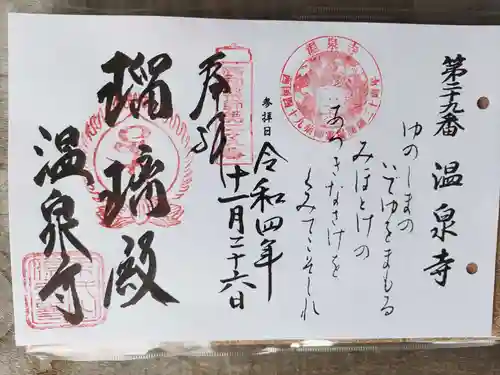 第二十九番 温泉寺
ゆのしまの
いでゆをまもる
みほとけの
あつきなさけを
くみてこそしれ
参拝日
令和四年
十一月二十六日
奉拝
瑠璃殿
温泉寺